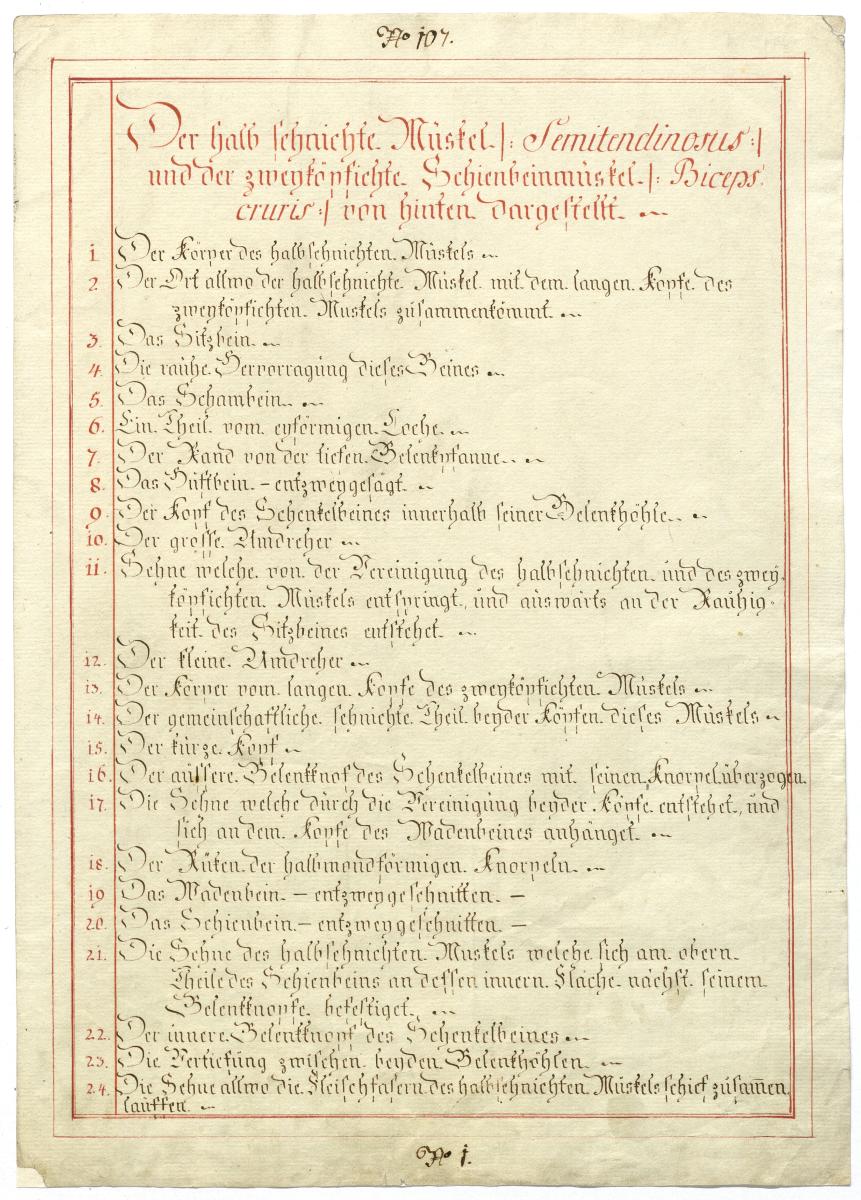 No 107.
Der halb sehnichte Müskel |: Semitendinosus :|
und der zweyköpfichte Schienbeinmüskel |: Biceps
cruris :| von hinten dargestellt.
1. Der Körper des halbsehnichten Müskels
2. Der Ort allwo der halbsehnichte Müskel mit dem langen Kopfe des
zweyköpfichten Muskels zusammenkömmt.
3. Das Sitzbein.
4. Die rauhe Hervorragüng dieses Beines
5. Das Schambein.
6. Ein Theil vom eyförmigen Loche.
7. Der Rand von der tiefen Gelenkpfanne.
8. Das Hüftbein – entzweygesägt.
9. Der Kopf des Schenkelbeines innerhalb seiner Gelenkhöhle.
10. Der grosse Umdreher
11. Sehne welche von der Vereinigüng des halbsehnichten und des zwey-
köpfichten Müskels entspringt, und auswärts an der Rauhig-
keit des Sitzbeines entstehet.
12. Der kleine Umdreher
13. Der Körper vom langen Kopfe des zweyköpfichten Müskels
14. Der gemeinschaftliche sehnichte Theil beyder Köpfen dieses Müskels
15. Der kürze Kopf
16. Der aüssere Gelenkknof des Schenkelbeines mit seinen Knorpel überzogen.
17. Die Sehne welche dürch die Vereinigüng beyder Köpfe entstehet, und
sich an dem Kopfe des Wadenbeines anhänget.
18. Der Rüken der halbmondförmigen Knorpeln.
19 Das Wadenbein – entzweygeschnitten. –
20. Das Schienbein – entzweygeschnitten. –
21. Die Sehne des halbsehnichten Muskels welche sich am obern
Theile des Schienbeins an dessen innern Fläche nächst seinem
Gelenkknopfe befestiget.
22. Der innere Gelenkknopf des Schenkelbeines
23. Die Vertiefüng zwischen beyden Gelenkhöhlen.
24. Die Sehne allwo die Fleischfasern des halbsehnichten Müskels schief zusam̅en
lauffen.
No 1.